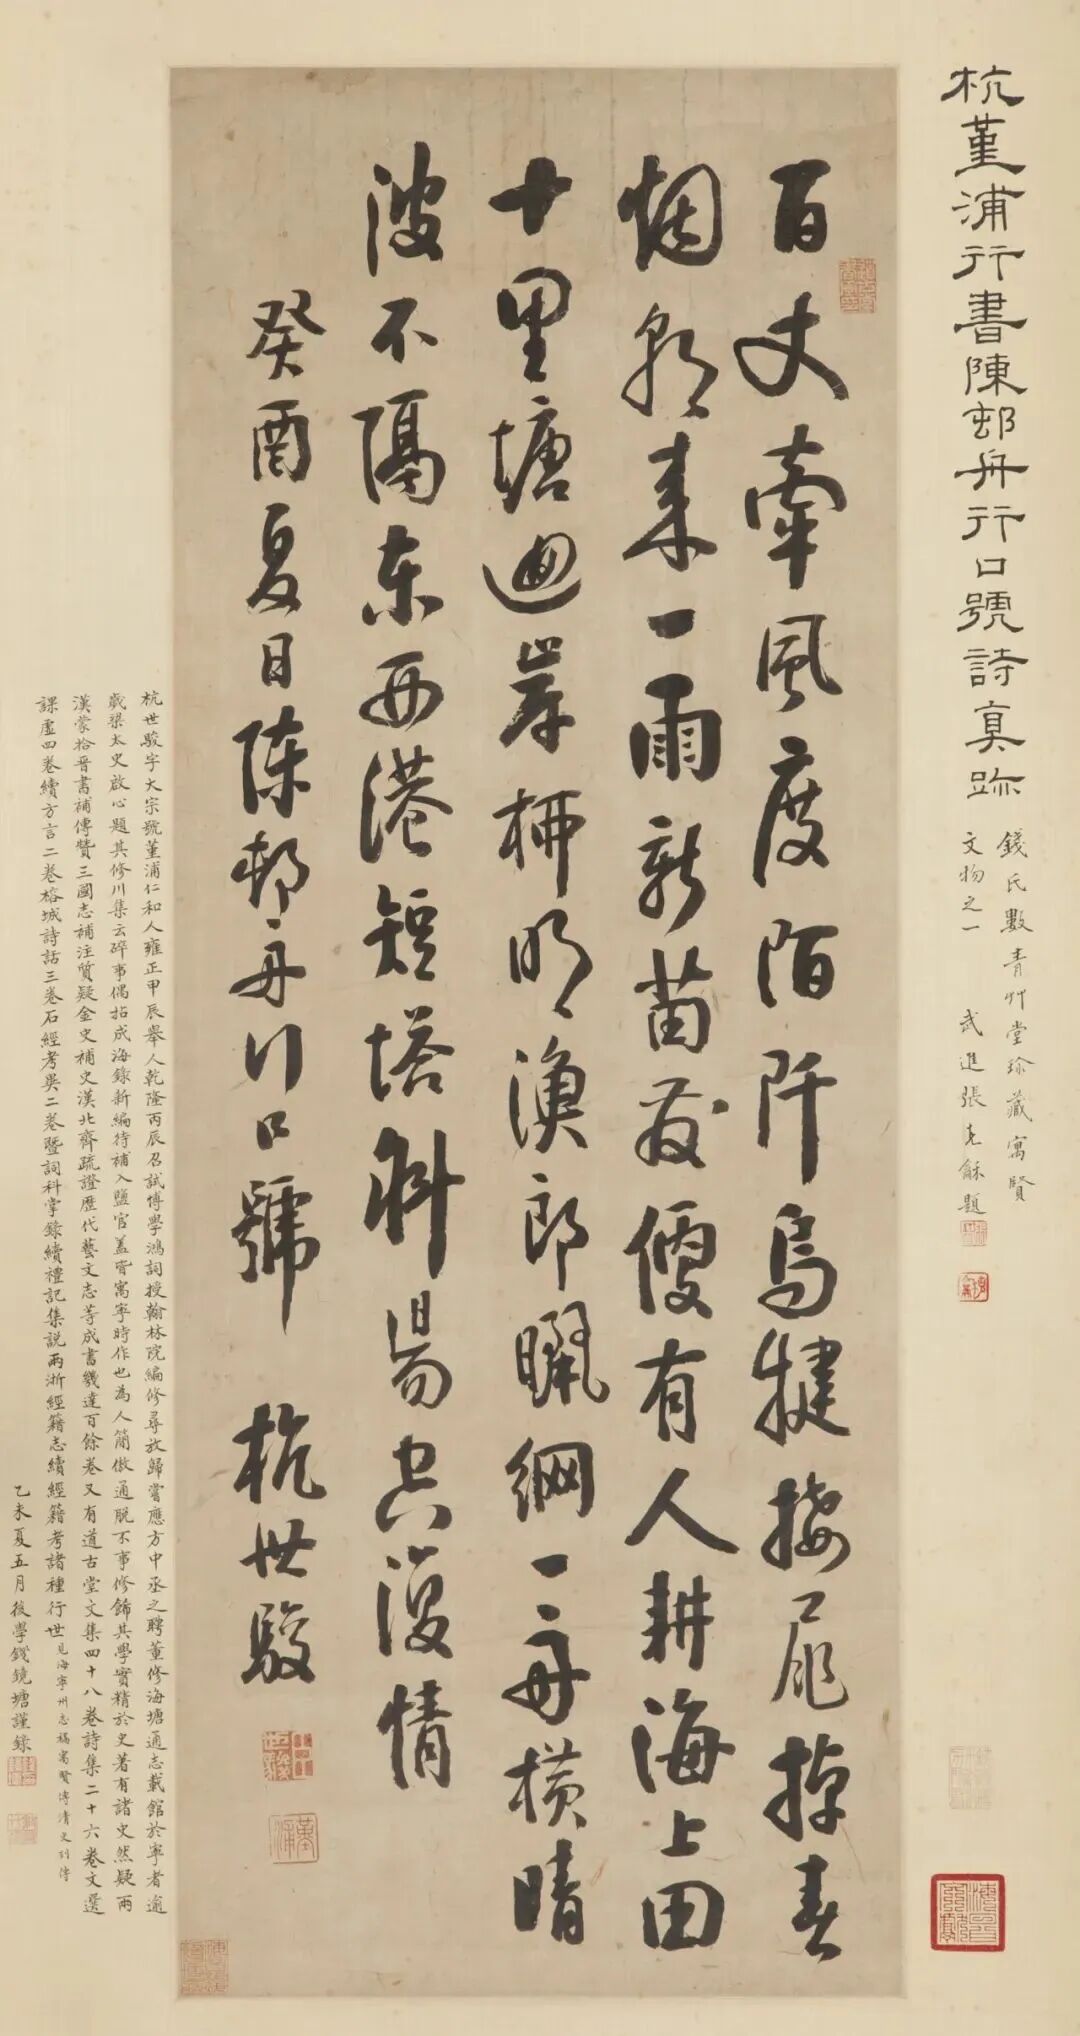 杭堇浦行書陳邨舟行口號詩真跡
錢氏數青艸堂珍藏寓賢
文物之一 武進張克龢題
百丈牽風度陌阡烏犍接尾掉春
烟船来一雨新苗發便有人耕海上田
十里塘迴岸柳明漁郎曬網一舟橫晴
波不隔东西港短塔斜陽空復情
癸酉夏日陳邨舟行口號 杭世駿
杭世駿字大宗號堇浦仁和人雍正甲辰舉人乾隆丙辰召試博學鴻詞授翰林院編修尋放歸嘗應方中丞之聘董修海塘通志載館於寧者逾
歲梁太史啟心題其修川集云碎事偶拈成海錄新編待補入鹽官蓋皆寓寧時作也為人簡傲通脫不事修飾其學實精於史著有諸史然疑兩
漢蒙拾晉書補傳贊三國志補注質疑金史補史漢北齊疏證歷代藝文志等成書幾達百餘卷又有道古堂文集四十八卷詩集二十六卷文選
課虛四卷續方言二卷榕城詩話三卷石經考異二卷暨詞科掌錄續禮記集説兩浙經籍志續經籍考諸種行世見海寧州志稿寓賢傳清史列傳
乙未夏五月後學錢鏡塘謹錄
世駿
堇浦